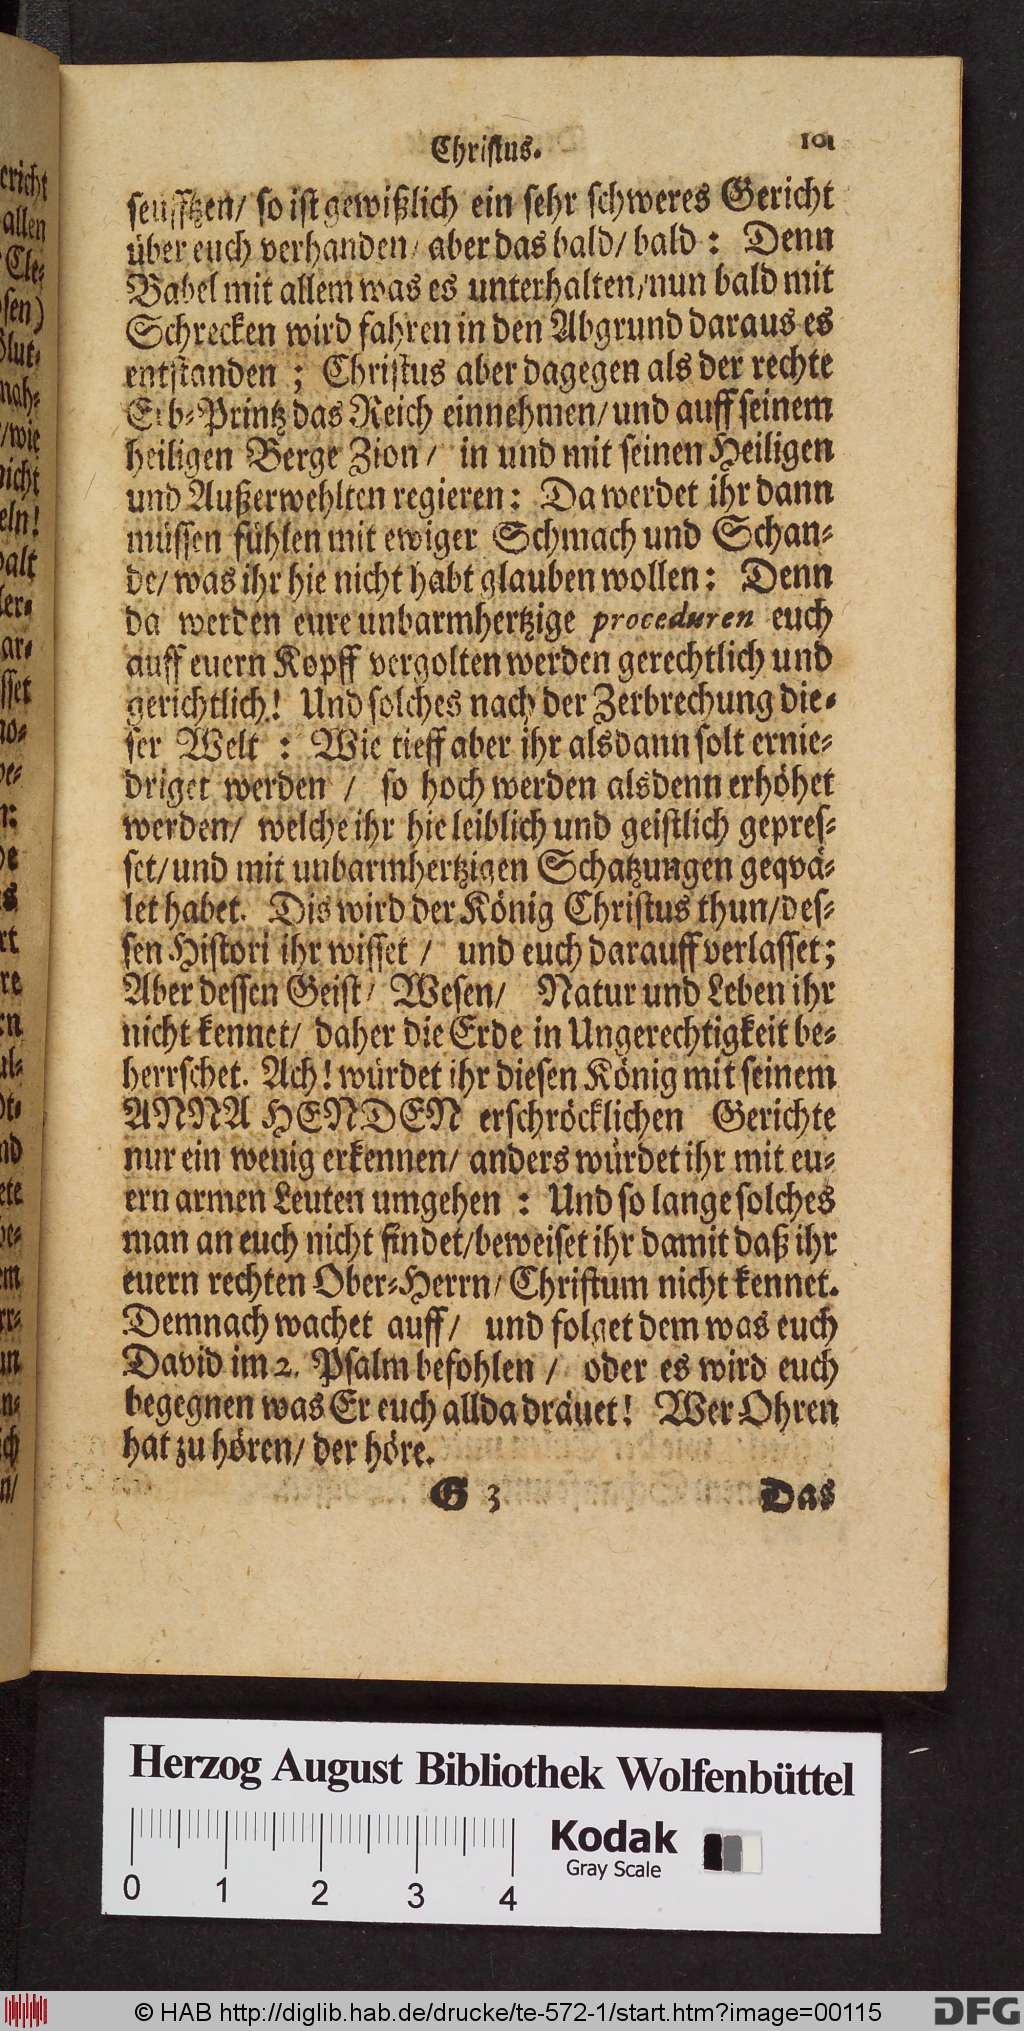 Christus. 101
seufftzen/ so ist gewißlich ein sehr schweres Gericht
über euch verhanden/ aber das bald/ bald: Denn
Babel mit allem was es unterhalten/ nun bald mit
Schrecken wird fahren in den Abgrund daraus es
entstanden ; Christus aber dagegen als der rechte
Erb-Printz das Reich einnehmen/ und auff seinem
heiligen Berge Zion/ in und mit seinen Heiligen
und Außerwehlten regieren: Da werdet ihr dann
müssen fühlen mit ewiger Schmach und Schan-
de/ was ihr hie nicht habt glauben wollen: Denn
da werden eure unbarmhertzige proceduren euch
auff euern Kopff vergolten werden gerechtlich und
gerichtlich! Und solches nach der Zerbrechung die-
ser Welt : Wie tieff aber ihr alsdann solt ernie-
driget werden / so hoch werden alsdenn erhöhet
werden/ welche ihr hie leiblich und geistlich gepres-
set/ und mit unbarmhertzigen Schatzungen geqvä-
let habet. Dis wird der König Christus thun/ des-
sen Histori ihr wisset / und euch darauff verlasset;
Aber dessen Geist/ Wesen/ Natur und Leben ihr
nicht kennet/ daher die Erde in Ungerechtigkeit be-
herrschet. Ach! würdet ihr diesen König mit seinem
ANNA HENDEN erschröcklichen Gerichte
nur ein wenig erkennen/ anders würdet ihr mit eu-
ern armen Leuten umgehen : Und so lange solches
man an euch nicht findet/ beweiset ihr damit daß ihr
euern rechten Ober-Herrn/ Christum nicht kennet.
Demnach wachet auff/ und folget dem was euch
David im 2. Psalm befohlen / oder es wird euch
begegnen was Er euch allda dräuet! Wer Ohren
hat zu hören/ der höre.
G 3 Das
Herzog August Bibliothek Wolfenbüttel
Kodak
Gray Scale
0 1 2 3 4
© HAB http://diglib.hab.de/drucke/te-572-1/start.htm?image=00115
DFG